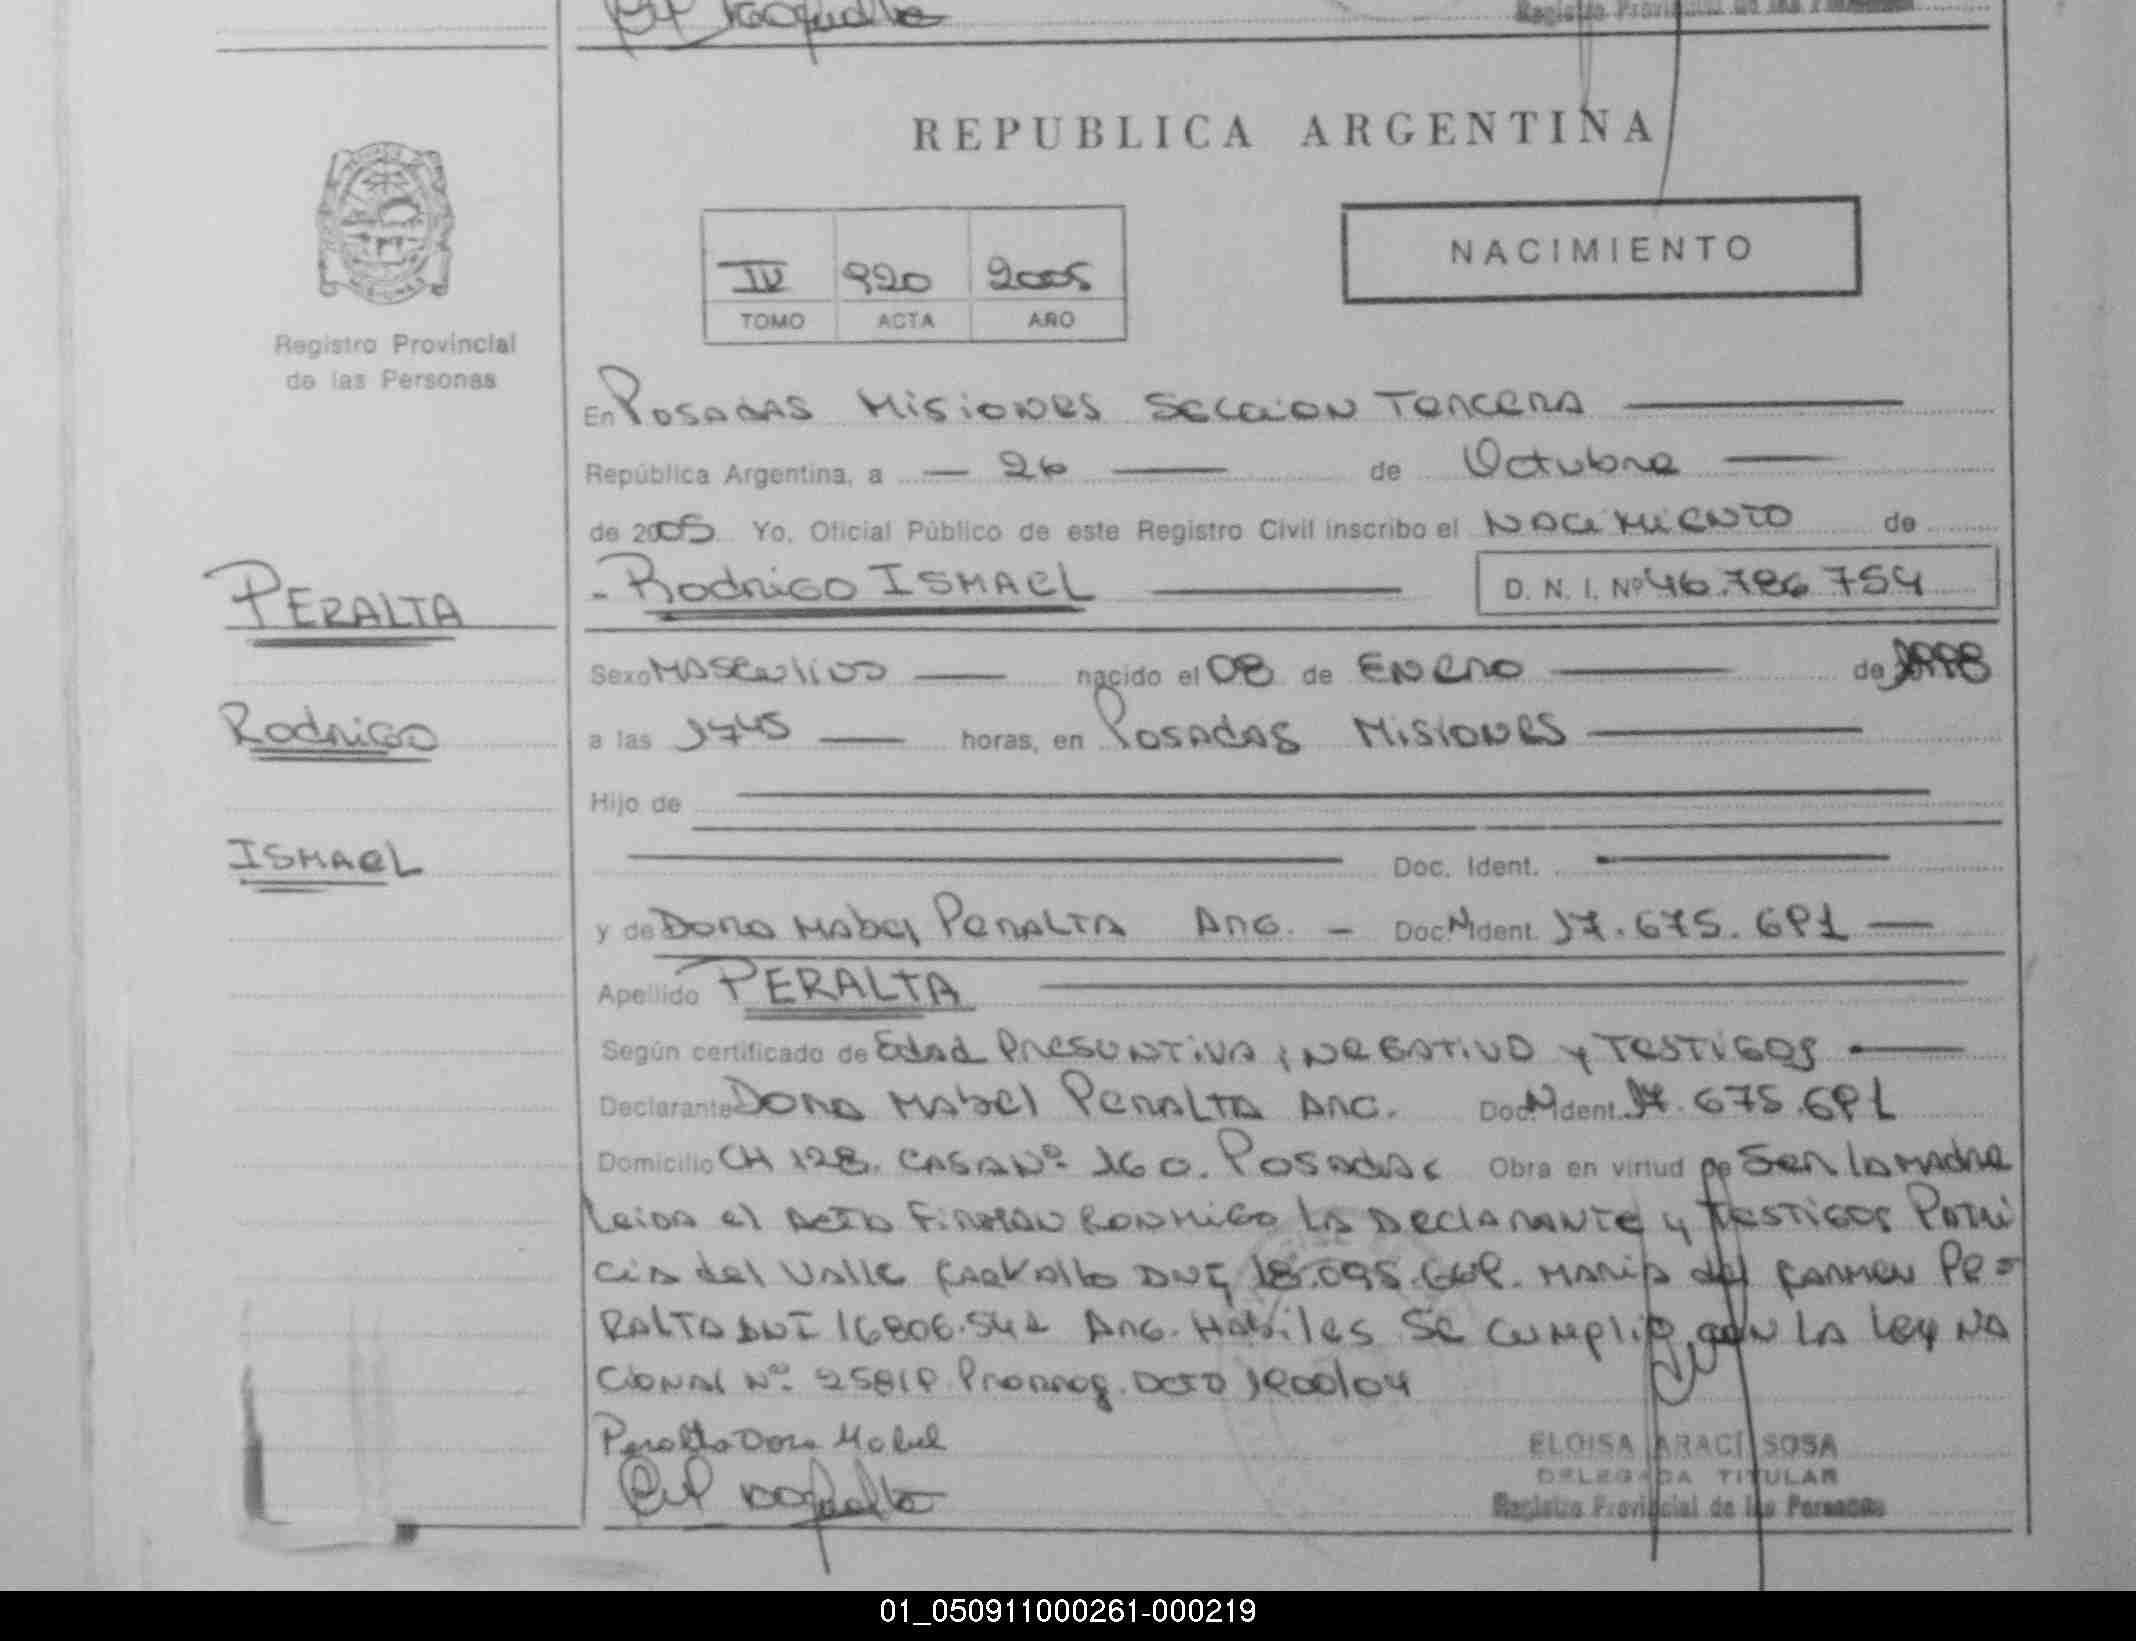 REPUBLICA ARGENTINA
NACIMIENTO
IV 920 2005
TOMO ACTA AÑO
Registro Provincial
de las Personas
En Posadas Misiones Seccion Tercera
República Argentina, a 26 de Octubre
de 2005 Yo, Oficial Público de este Registro Civil inscribo el NACIMIENTO de
PERALTA
Rodrigo ISMAEL D. N. I. Nº 46.786.754
Sexo MASCULINO nacido el 08 de ENERO de 1998
Rodrigo
a las 1745 horas, en Posadas Misiones
Hijo de
ISMAEL
Doc. Ident.
y de Dora Mabel Peralta Arg. - Doc. Ident. 17.675.691
Apellido PERALTA
Según certificado de Edad Presuntiva, Negativo y Testigos
Declarante Dora Mabel Peralta Arg. Doc. Ident. 17.675.691
Domicilio CH 128. CASA Nº 160. Posadas Obra en virtud de Ser la Madre
Leida el Acta Firman Conmigo la Declarante y Testigos Patri
cia del Valle DNI 18.095.669. Maria del Carmen Pe=
Ralta DNI 16806.542 Arg. Habiles Se Cumplio con La Ley Na
cional Nº 25819 Prorrog. Dcto 1200/04
Peralta Dora Mabel
ELOISA ARACI SOSA
DELEGADA TITULAR
Registro Provincial de las Personas
01_050911000261-000219